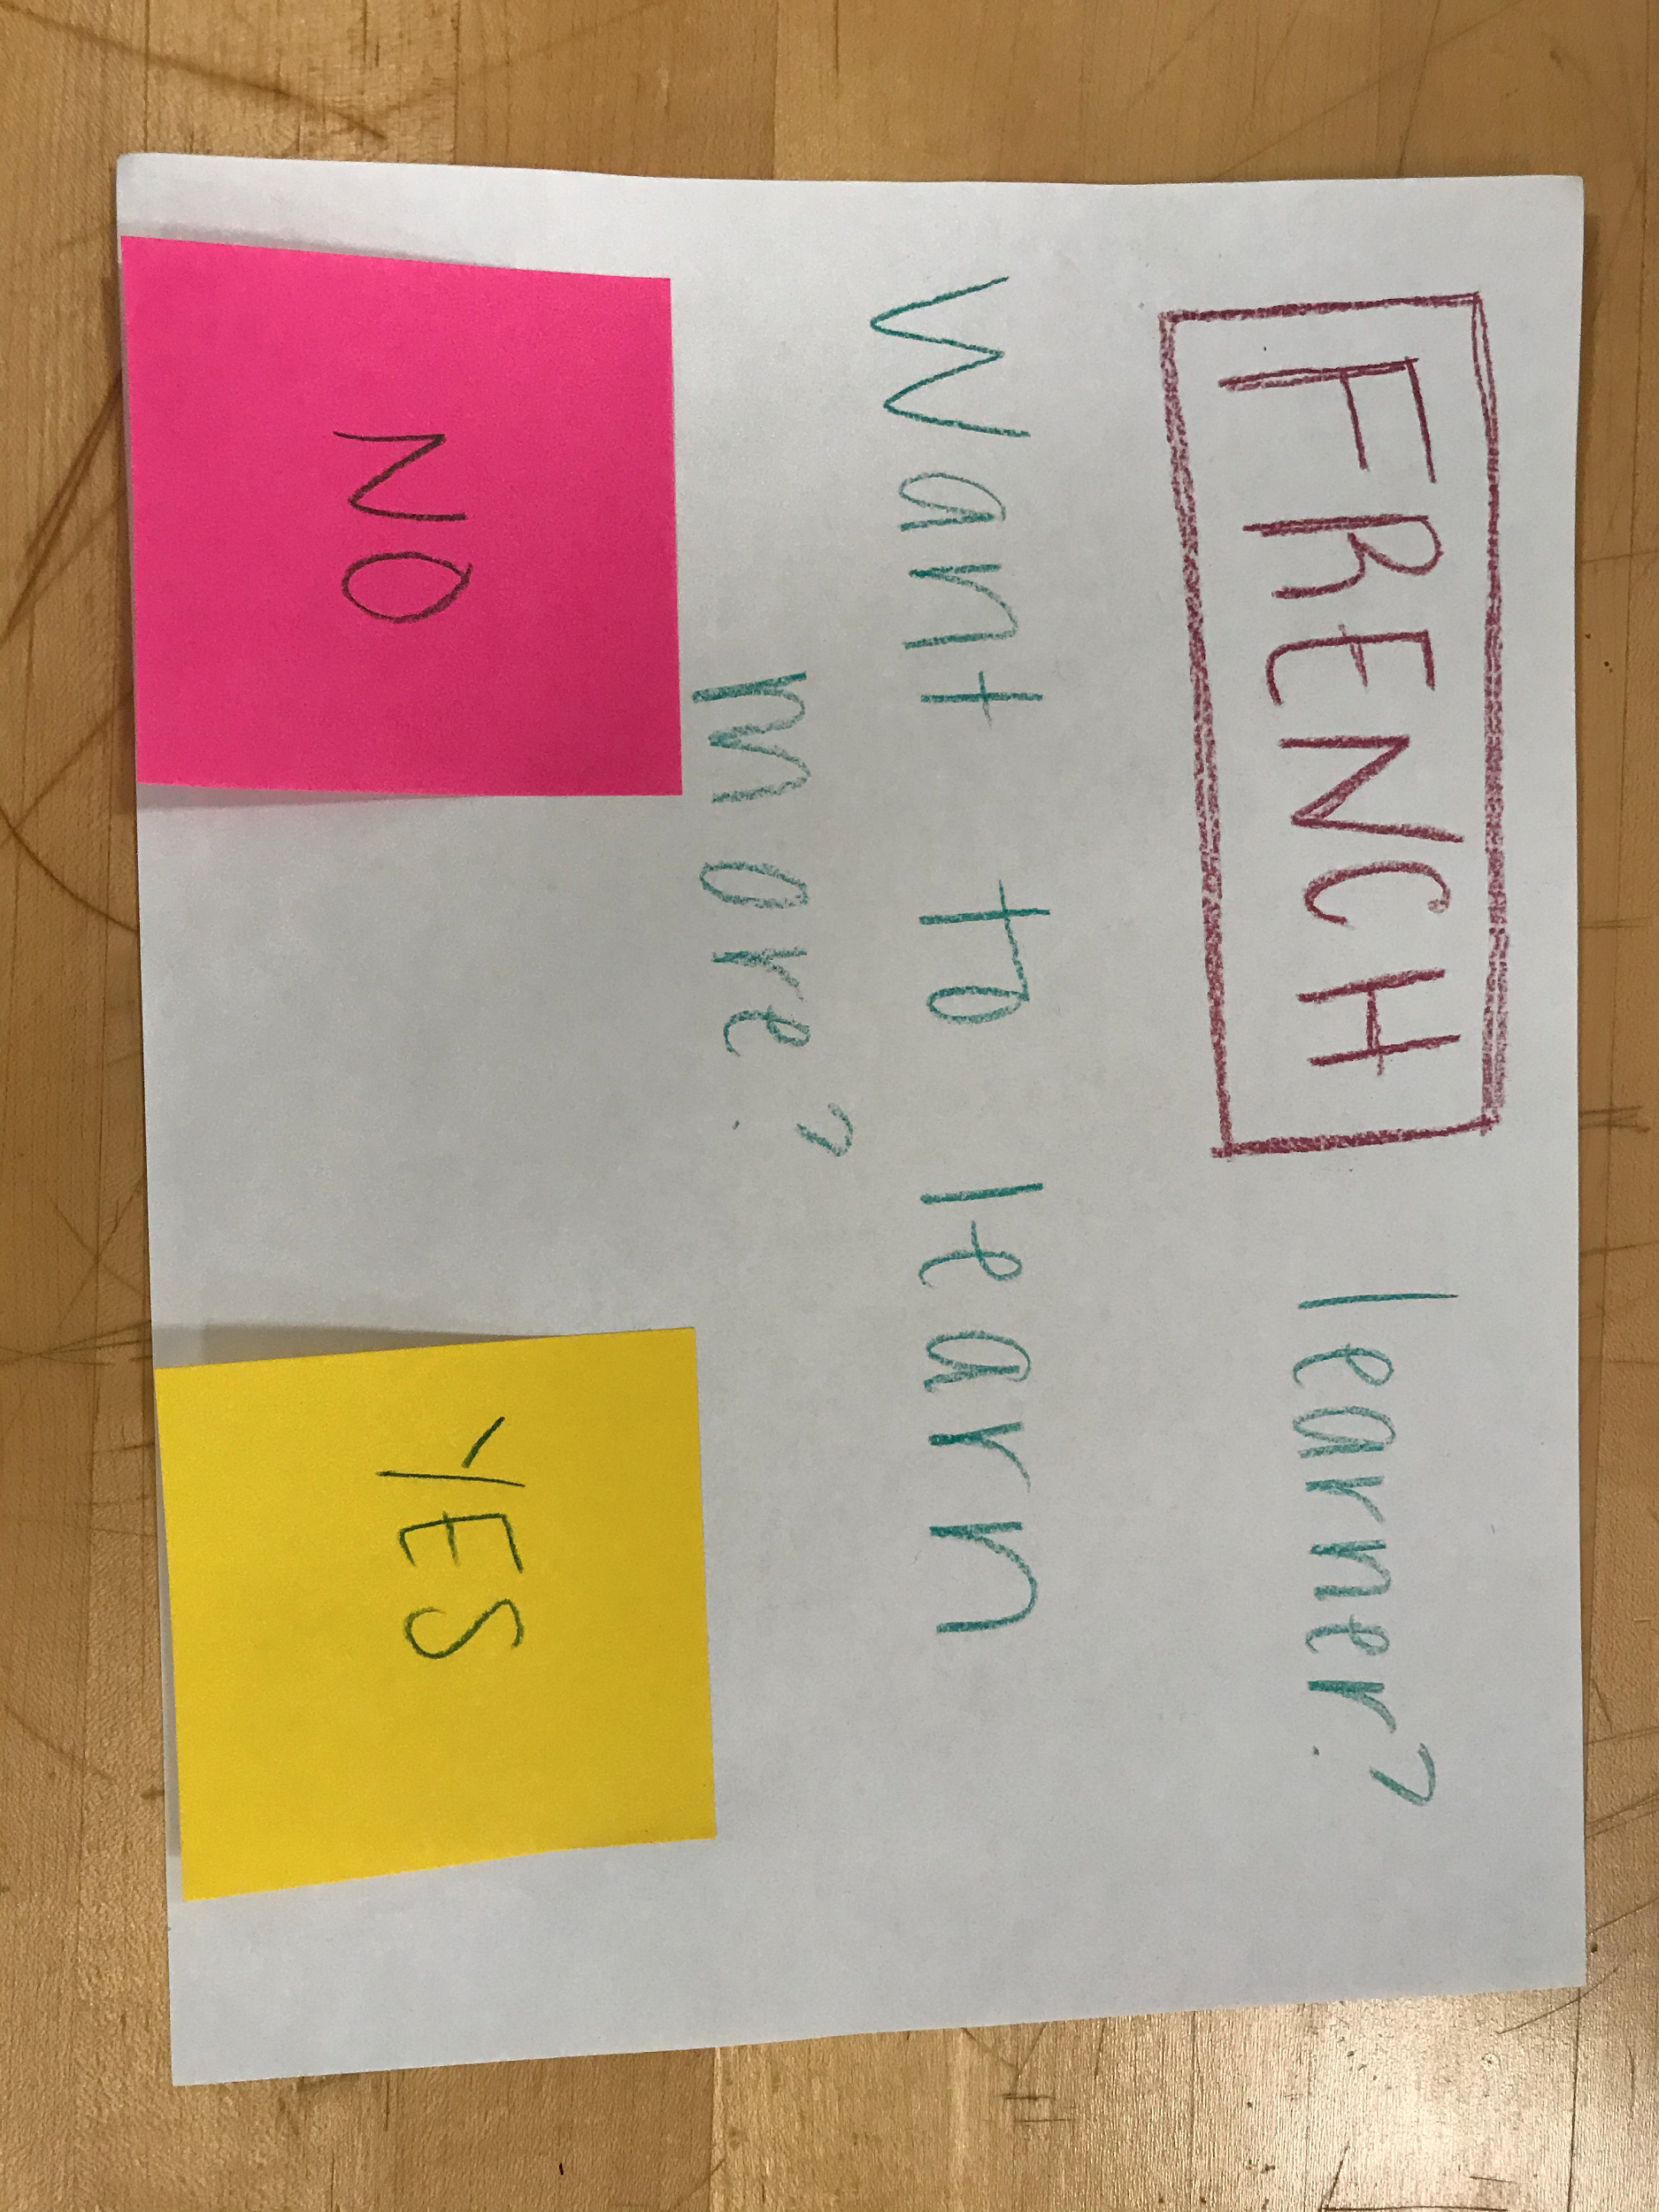 FRENCH learner?
Want to learn
more?
NO
YES